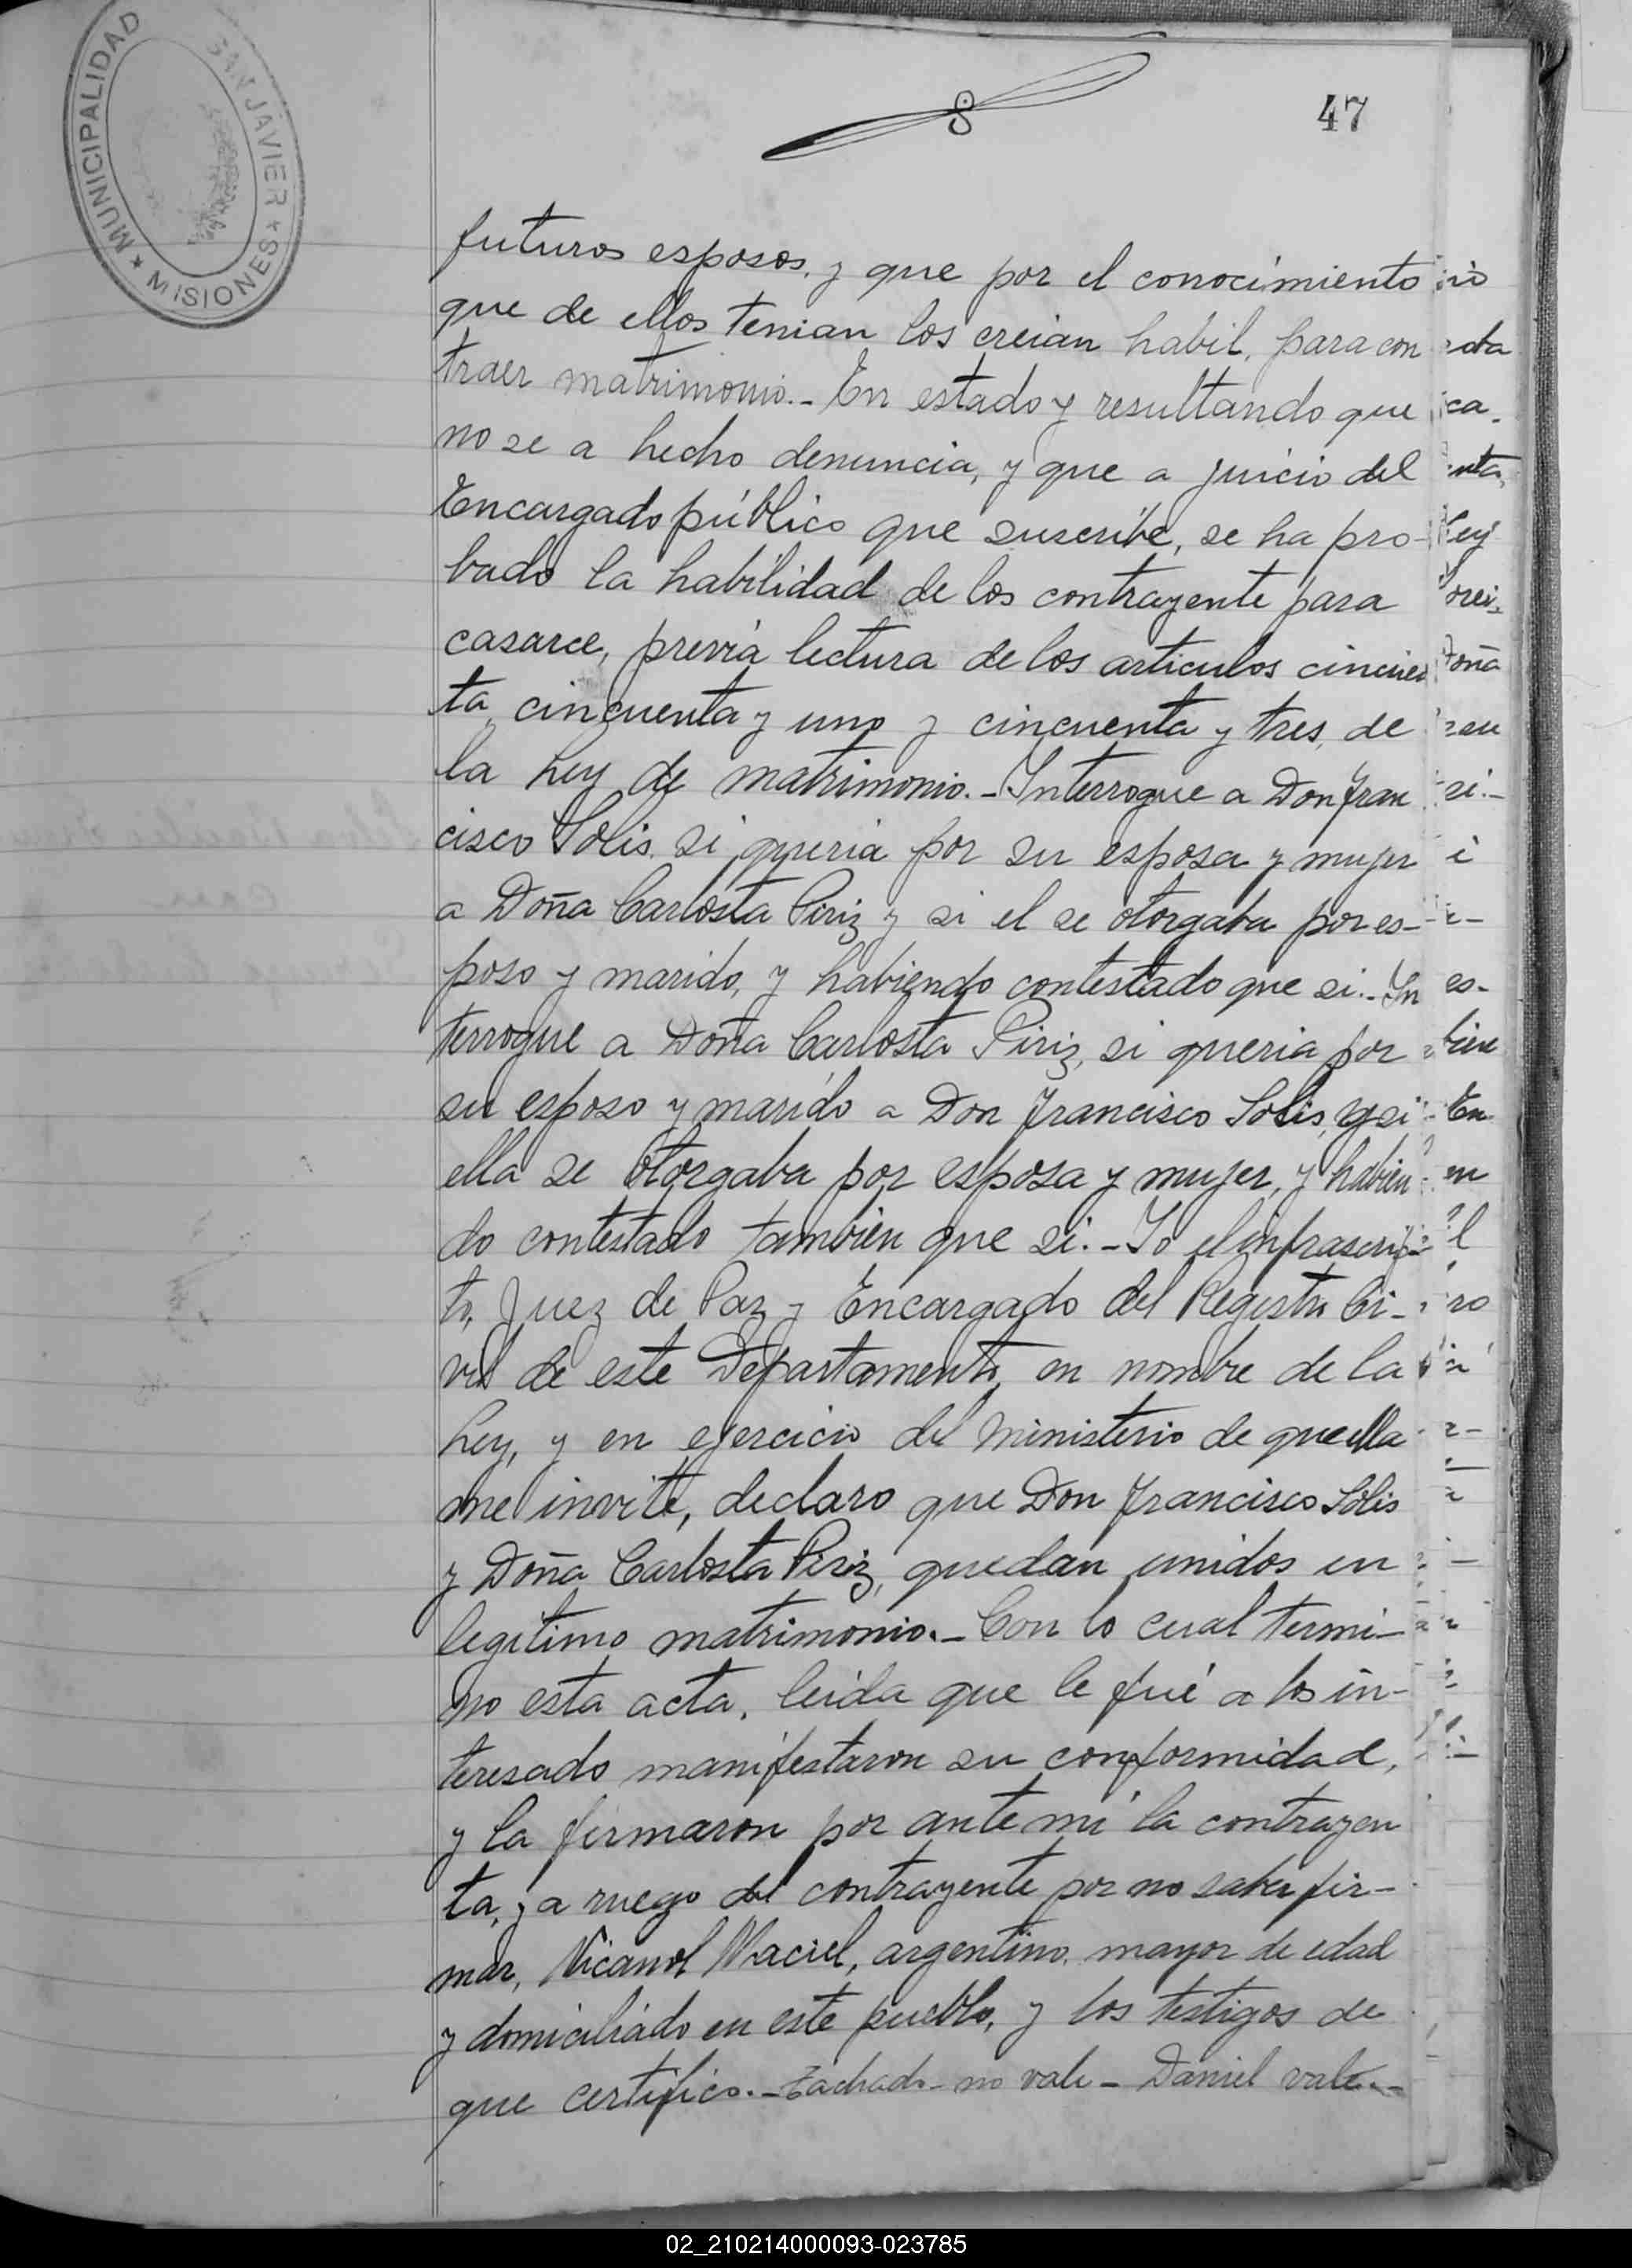 MUNICIPALIDAD
SAN JAVIER
★ MISIONES ★
8
47
futuros esposos, y que por el conocimiento
que de ellos tenian los creian habil, para con
traer matrimonio.- En estado y resultando que
no se a hecho denuncia, y que a juicio del
Encargado público que suscribe, se ha pro-
bado la habilidad de los contrayente para
casarce, previa lectura de los articulos cincuen
ta, cincuenta y uno y cincuenta y tres, de
la Ley de matrimonio.- Interrogue a Don Fran
cisco Solis si queria por su esposa y mujer
a Doña Carlosta Piriz y si el se otorgaba por es-
poso y marido, y habiendo contestado que si.- In
terrogue a Doña Carlosta Piriz, si queria por
su esposo y marido a Don Francisco Solis, y si
ella se otorgaba por esposa y mujer, y habien
do contestado tambien que si.- Yo el infrascrip-
to, Juez de Paz y Encargado del Registro Ci-
vil de este Departamento, en nombre de la
Ley, y en ejercicio del Ministerio de que ella
me invite, declaro que Don Francisco Solis
y Doña Carlosta Piriz, quedan unidos en
legitimo matrimonio.- Con lo cual termi-
no esta acta, leida que le fué a los in-
teresado manifestaron su conformidad,
y la firmaron por ante mi la contrayen
ta, y a ruego del contrayente por no saber fir-
mar, Nicanol Maciel, argentino, mayor de edad
y domiciliado en este pueblo, y los testigos de
que certifico.- Tachado- no vale- Daniel vale.-
02_210214000093-023785